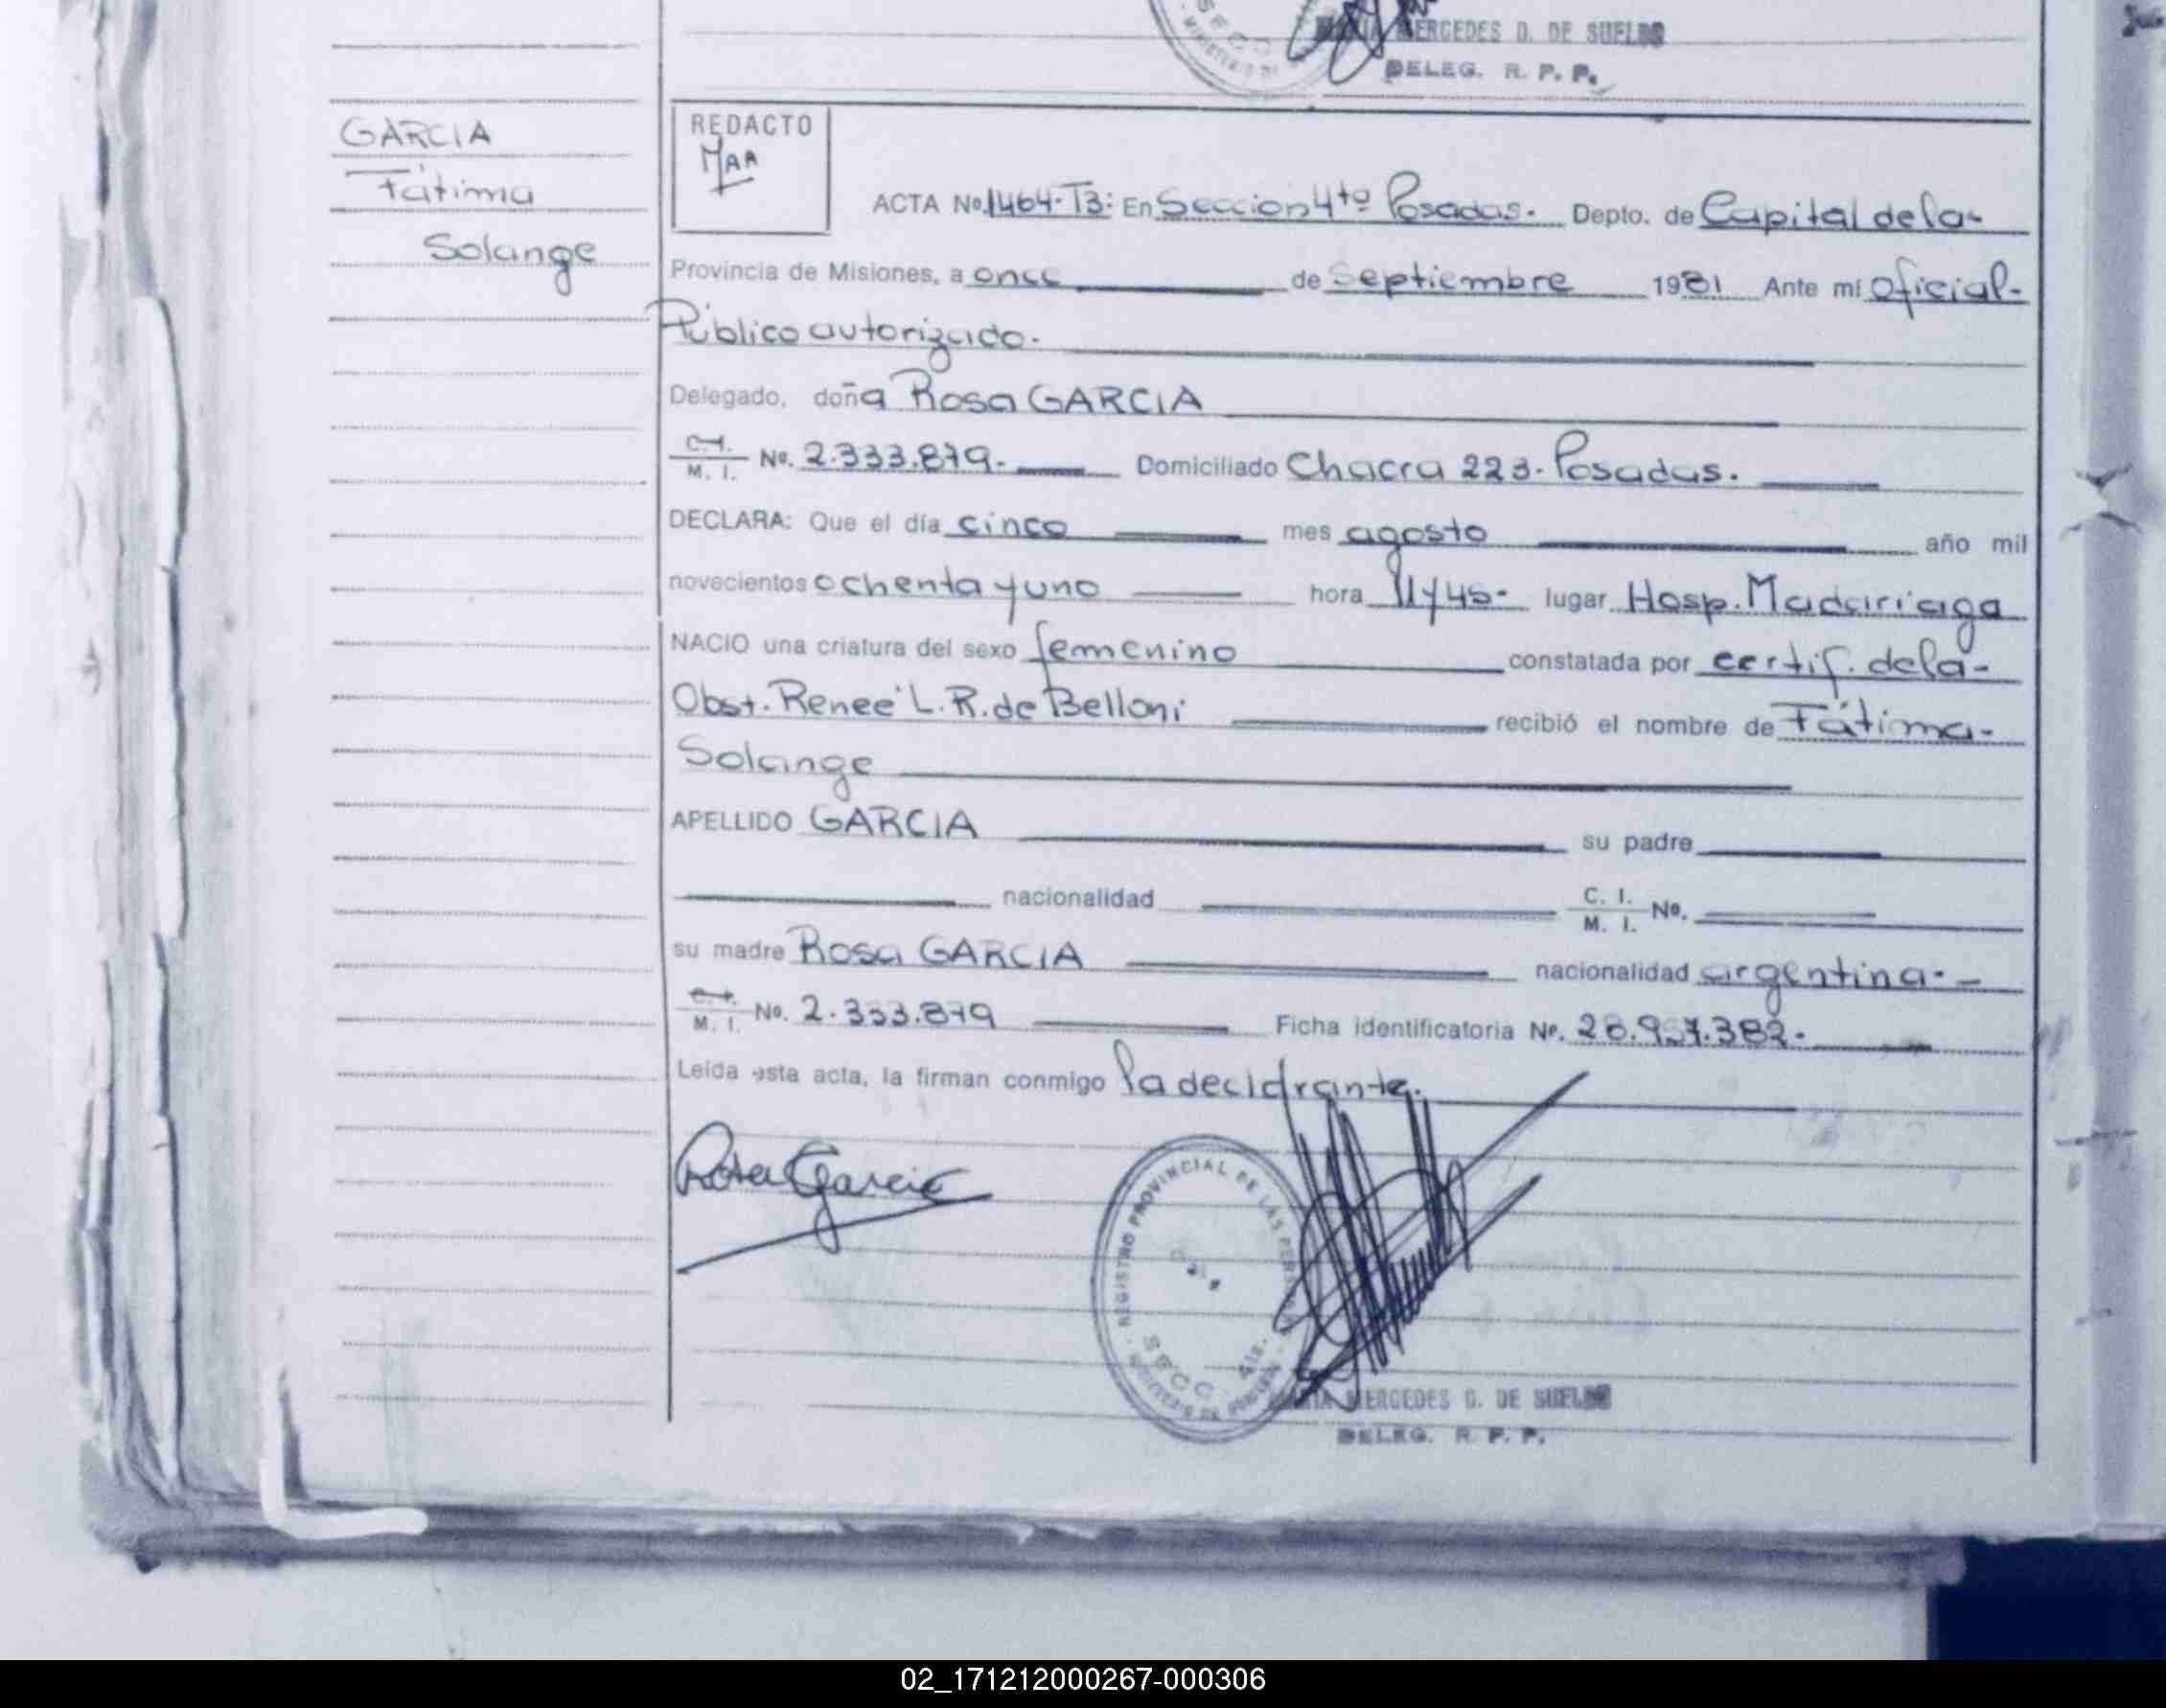 MERCEDES D. DE SUELDO
DELEG. R. P. P.
GARCIA
Fátima
Solange
REDACTO
MAA
ACTA Nº 1464-T3: En Seccion 4tª Posadas. Depto. de Capital de la-
Provincia de Misiones, a once de Septiembre 1981 Ante mí Oficial-
Público autorizado.
Delegado, doña Rosa GARCIA
C.I. M. I. Nº. 2.333.879. Domiciliado Chacra 223. Posadas.
DECLARA: Que el día cinco mes agosto año mil
novecientos ochenta y uno hora 11y45- lugar Hosp. Madariaga
NACIO una criatura del sexo femenino constatada por certif. de la-
Obst. Reneé L. R. de Belloni recibió el nombre de Fátima-
Solange
APELLIDO GARCIA su padre
nacionalidad C. I. M. I. Nº.
su madre Rosa GARCIA nacionalidad argentina.-
C.I. M. I. Nº. 2.333.879 Ficha identificatoria Nº. 28.957.382.
Leída esta acta, la firman conmigo la declarante.
Rosa Garcia
REGISTRO PROVINCIAL DE LAS
SECC. 4ta.
MERCEDES D. DE SUELDO
DELEG. R. P. P.
02_171212000267-000306